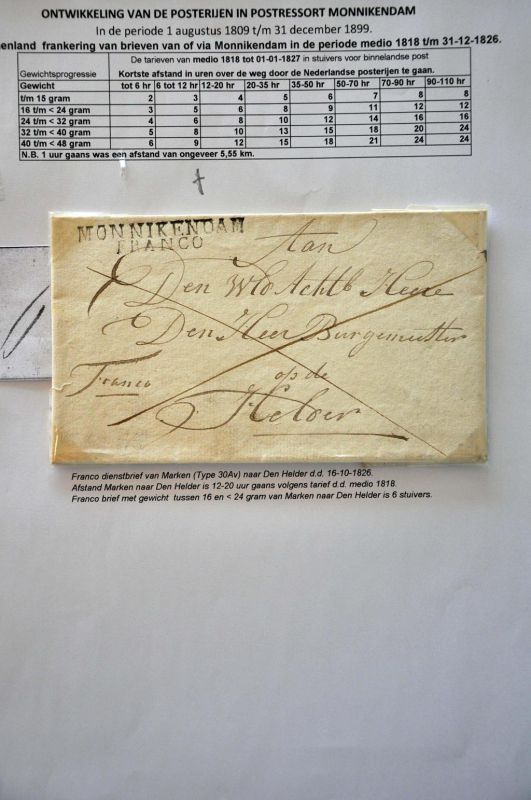 ONTWIKKELING VAN DE POSTERIJEN IN POSTRESSORT MONNIKENDAM
In de periode 1 augustus 1809 t/m 31 december 1899.
enland frankering van brieven van of via Monnikendam in de periode medio 1818 t/m 31-12-1826.
De tarieven van medio 1818 tot 01-01-1827 in stuivers voor binnelandse post
Gewichtsprogressie Kortste afstand in uren over de weg door de Nederlandse posterijen te gaan.
Gewicht tot 6 hr 6 tot 12 hr 12-20 hr 20-35 hr 35-50 hr 50-70 hr 70-90 hr 90-110 hr
t/m 15 gram 2 3 4 5 6 7 8 8
16 t/m < 24 gram 3 5 6 8 9 11 12 12
24 t/m < 32 gram 4 6 8 10 12 14 16 16
32 t/m < 40 gram 5 8 10 13 15 18 20 24
40 t/m < 48 gram 6 9 12 15 18 21 24 24
N.B. 1 uur gaans was een afstand van ongeveer 5,55 km.
MONNIKENDAM
FRANCO
Aan
Den WEd Achtb Heere
Den Heer Burgemeester
Franco op de
Helder
Franco dienstbrief van Marken (Type 30Av) naar Den Helder d.d. 16-10-1826.
Afstand Marken naar Den Helder is 12-20 uur gaans volgens tarief d.d. medio 1818.
Franco brief met gewicht tussen 16 en < 24 gram van Marken naar Den Helder is 6 stuivers.